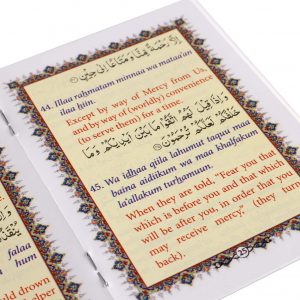 إِلَّا رَحْمَةً مِنَّا وَمَتَاعًا إِلَىٰ حِينٍ
44. Illaa raḥmatam minnaa wa mataa'an
ilaa ḥiin.
Except by way of Mercy from Us,
and by way of (worldly) convenience
(to serve them) for a time.
وَإِذَا قِيلَ لَهُمُ اتَّقُوا مَا بَيْنَ أَيْدِيكُمْ وَمَا
خَلْفَكُمْ لَعَلَّكُمْ تُرْحَمُونَ
45. Wa idhaa qiila lahumut taquu maa
baina aidiikum wa maa khalfakum
la'allakum turḥamuun.
When they are told, "Fear you that
which is before you and that which
will be after you, in order that you
may receive mercy," (they turn
back).
falaa
hum
drown
helper